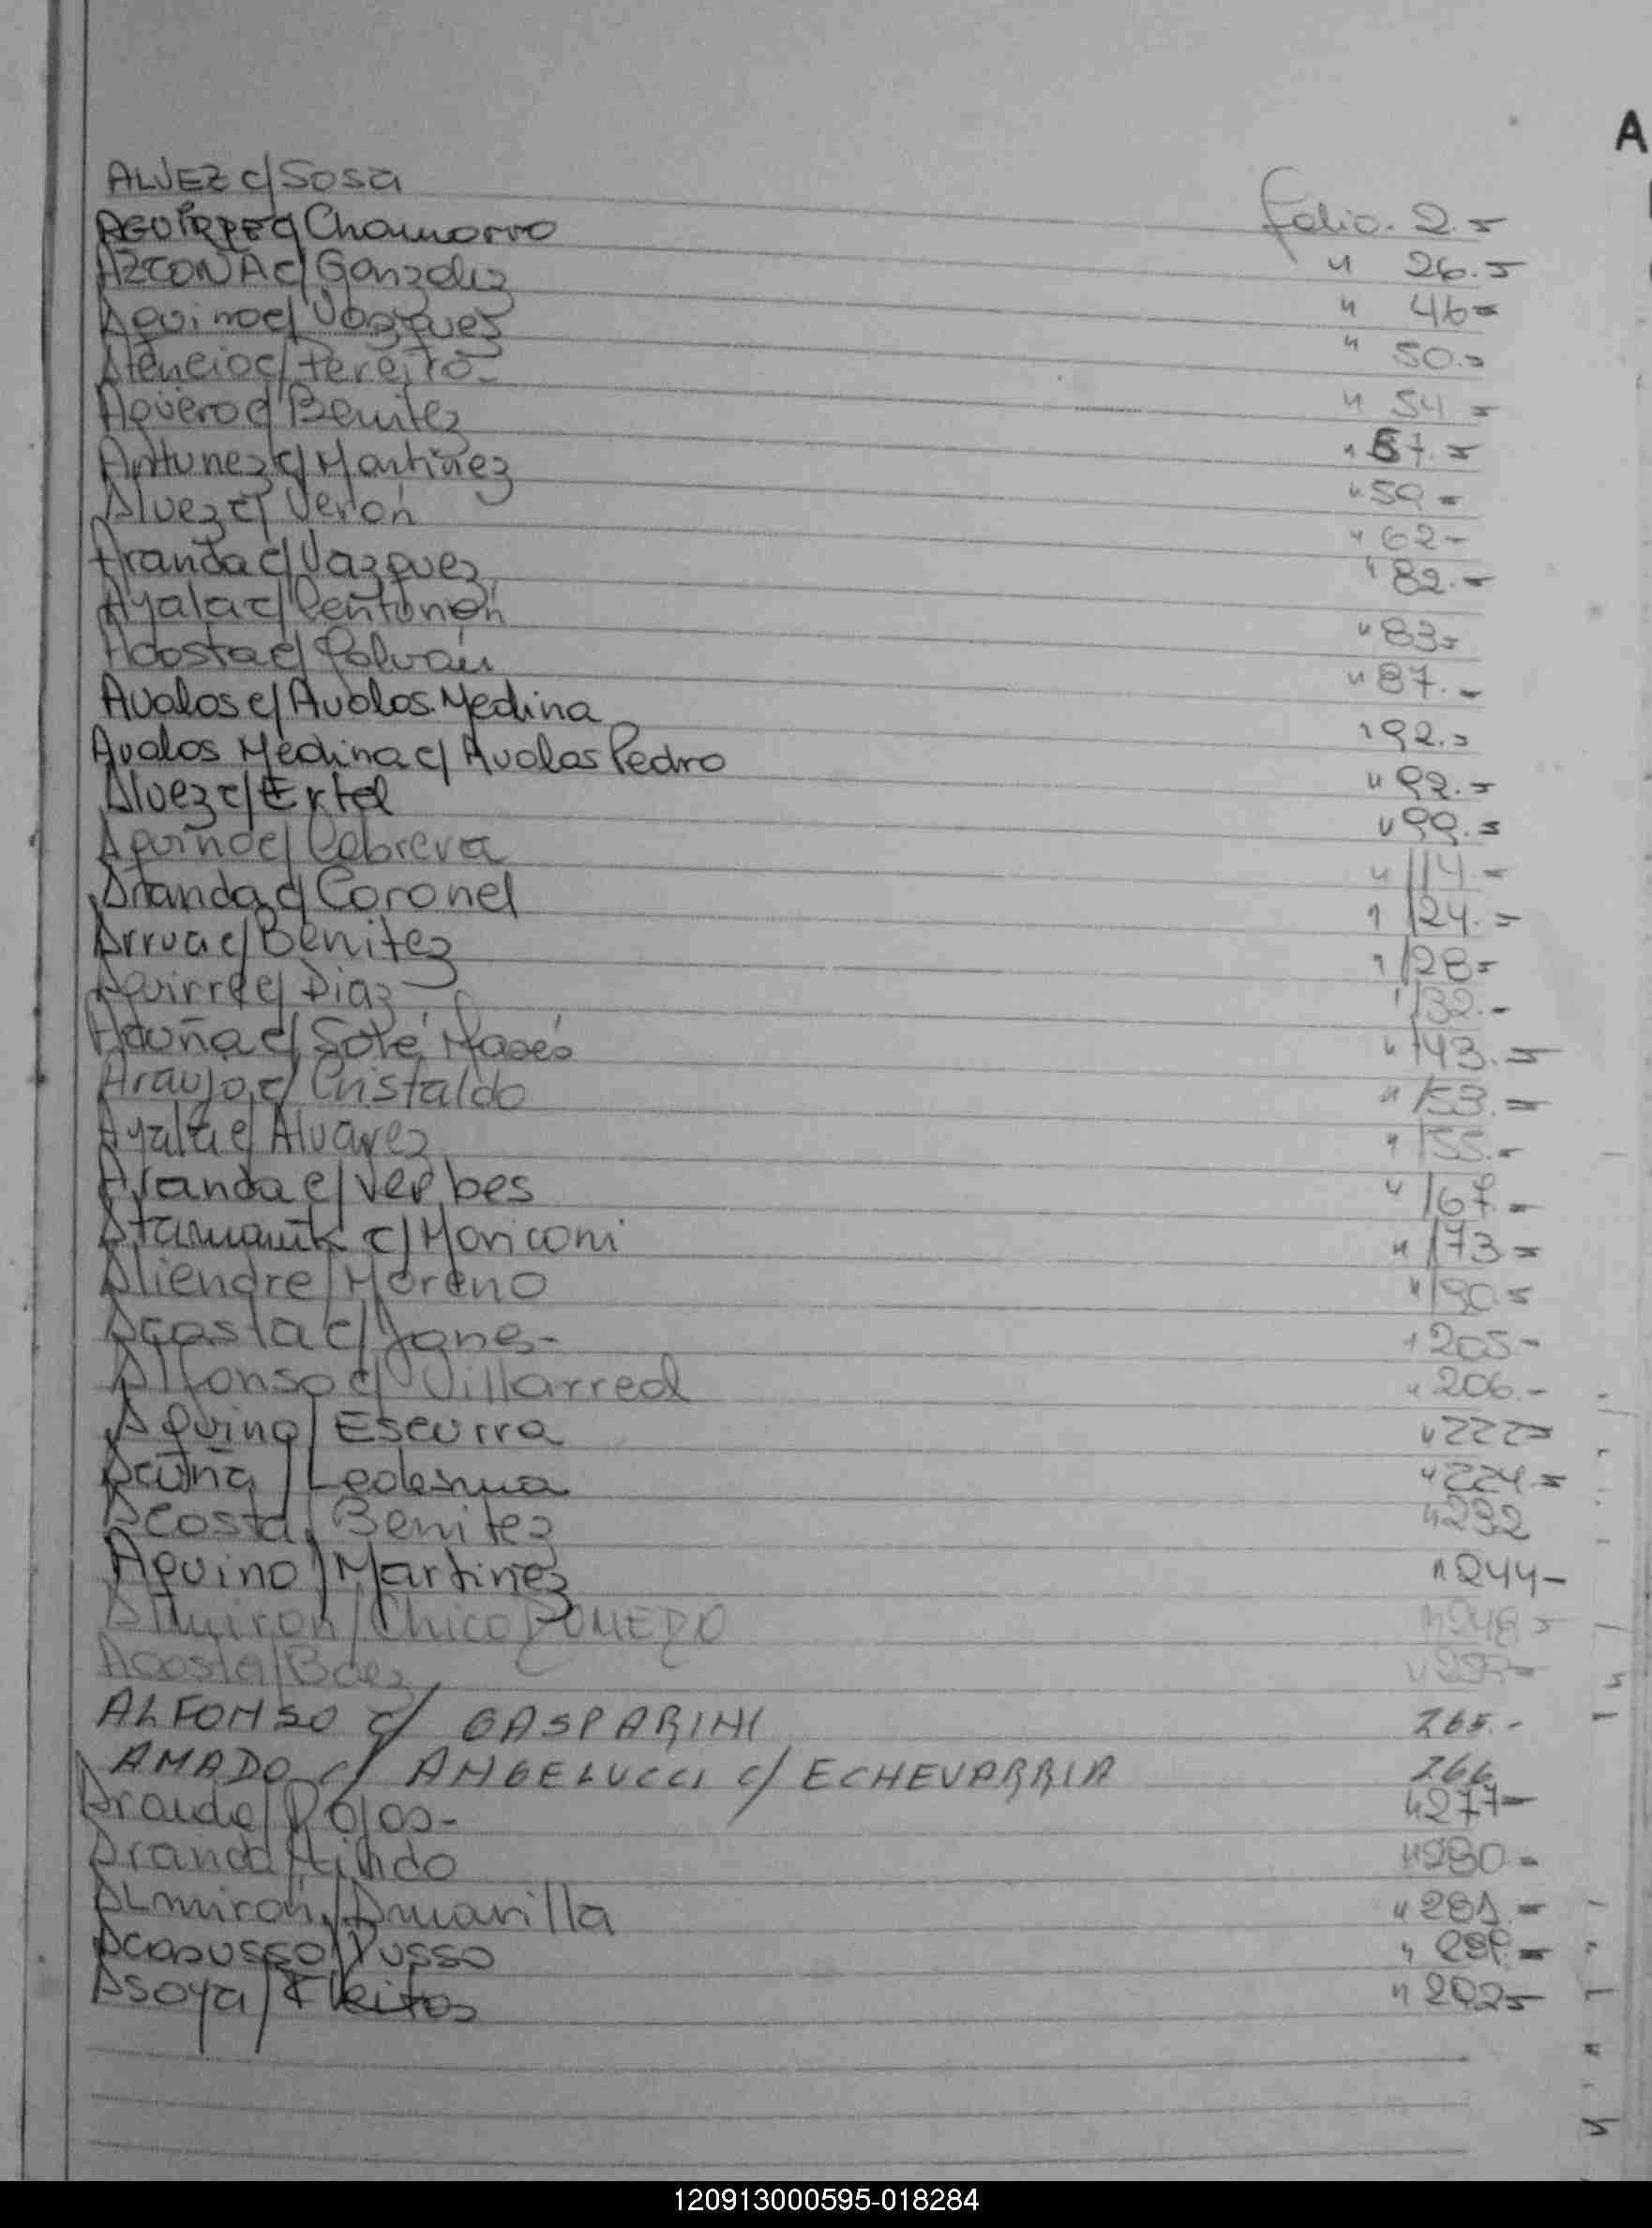 A
ALVEZ c/ Sosa Folio. 2.=
AGUIRREC/ Chamorro " 26.=
AZCONA c/ Gonzalez " 46=
Aquino c/ Vazquez " 50.=
Atencio c/ Pereiro- " 54 =
Agüero c/ Benitez " 57.=
Antunez c/ Martinez " 59.=
Alvez c/ Verón " 62-
Aranda c/ Vazquez " 82.-
Ayala c/ Centurión " 83=
Acosta c/ Galván " 87.-
Avalos c/ Avalos.Medina " 92.=
Avalos Medina c/ Avalos Pedro " 92.=
Alvez c/ Ertel " 99.=
Aquino c/ Cabrera " 114.=
Aranda c/ Coronel " 124.=
Arrua c/ Benitez " 128=
Aguirre c/ Diaz " 132.-
Acuña c/ Solé Masés " 143.=
Araujo c/ Cristaldo " 153.=
Ayala c/ Alvarez " 155.-
Aranda c/ Verbes " 167.=
Atamanik c/ Moriconi " 173=
Aliendre/Moreno " 190=
Acosta c/ Jane- " 205-
Alfonso c/ Villarreal " 206.-
Aquino/ Escurra " 222=
Acuña / Ledesma " 224=
Acosta/ Benitez " 232
Aquino / Martinez " 244-
Almiron/Chico ROMERO " 248=
Acosta/Baez
ALFONSO c/ GASPARINI 265.-
AMADO c/ ANGELUCCI c/ ECHEVARRIA 266
Aranda/ Rojas- " 277-
Aranda/ " 280=
ALmirón/Amarilla " 281.=
Acasusso/Russo
Asoya/Fleitas " 292=
120913000595-018284